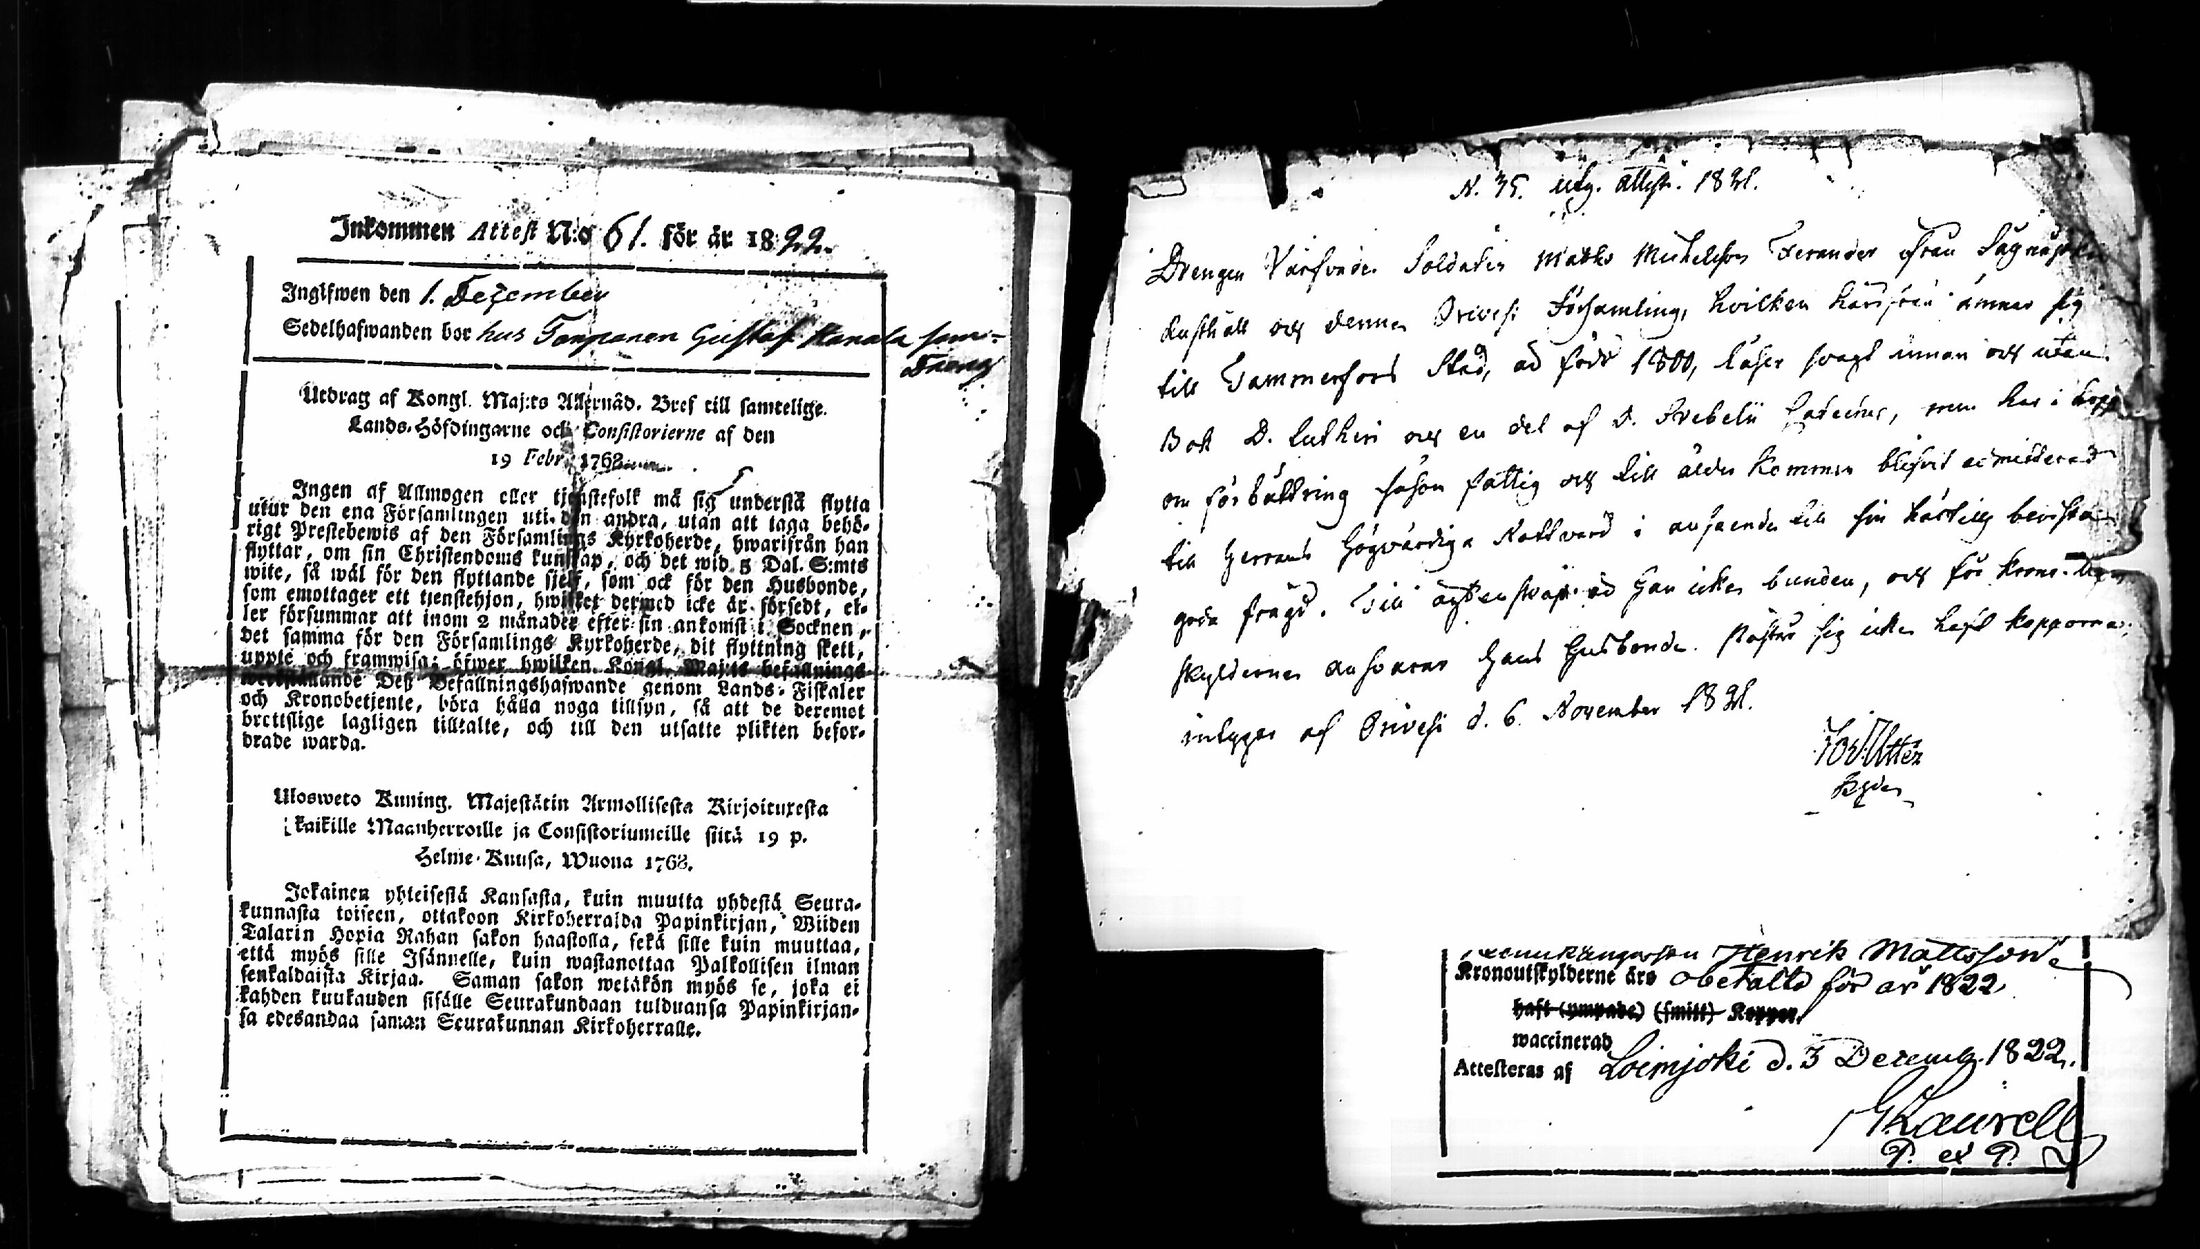 Inkommen Attest N:o 61. för år 1822.
Ingifwen den 1. Dezember
Sedelhafwanden bor hus Tampanen Gustaf Kanala som
Dreng
Utdrag af Kongl. Maj:ts Allernåd. Bref till samtelige
Lands-Höfdingarne och Consistorierne af den
19 Febr. 1768
Ingen af Allmogen eller tjenstefolk må sig understå flytta
utur den ena Församlingen uti den andra, utan att taga behö-
rigt Prestebewis af den Församlings Kyrkoherde, hwarifrån han
flyttar, om sin Christendoms kunskap, och det wid 5 Dal. S:mts
wite, så wäl för den flyttande sjelf, som ock för den Husbonde,
som emottager ett tjenstehjon, hwilket dermed icke är försedt, el-
ler försummar att inom 2 månader efter sin ankomst i Socknen,
det samma för den Församlings Kyrkoherde, dit flyttning skett,
uppte och framwisa; öfwer hwilken Kongl. Maj:ts befallnings
werkställande Deß Befallningshafwande genom Lands-Fiskaler
och Kronobetjente, böra hålla noga tillsyn, så att de deremot
brottslige lagligen tilltalte, och till den utsatte plikten befor-
drade warda.
Ulosweto Kuning. Majestätin Armollisesta Kirjoituxesta
kaikille Maanherroille ja Consistoriumeille siitä 19 p.
Helme-Kuusa, Wuona 1768.
Jokainen yhteisestä Kansasta, kuin muutta yhdestä Seura-
kunnasta toiseen, ottakoon Kirkoherralda Papinkirjan, Wiiden
Talarin Hopia Rahan sakon haastolla, sekä sille kuin muuttaa,
että myös sille Isännelle, kuin wastanottaa Palkollisen ilman
senkaldaista Kirjaa. Saman sakon wetäkön myös se, joka ei
kahden kuukauden sisälle Seurakundaan tulduansa Papinkirjan-
sa edesandaa saman Seurakunnan Kirkoherralle.
N. 35. utg. attest. 1821.
Drengen Varfvade Soldaten Matts Michelsson Feränder ifrån
Rusthåll och denne Orivesi Församling, hvilken härifrån ämnar sig
till Tammerfors Stad, är född 1800, läser svagt innan och utan
Bok D. Lutheri och en del af D. Svebelii Cateches, men har i hopp
om förbättring såsom fattig och till ålder kommen blifvit admitterad
till Herrans Högvärdiga Nattvard i anseende till sin härtills bevista
goda frägd. Till äktenskap är Han icke bunden, och för Krono-
skylderne ansvarar Hans Husbonde. Påstår sig icke haft kopporna;
intygar af Orivesi d. 6. November 1821.
Henrik Mattsson
Kronoutskylderne äro obetalte för år 1822
haft (ympade) (smitt) Koppor.
waccinerad
Attesteras af Loimjoki d. 3 Decemb. 1822.
G Laurell
P. et P.